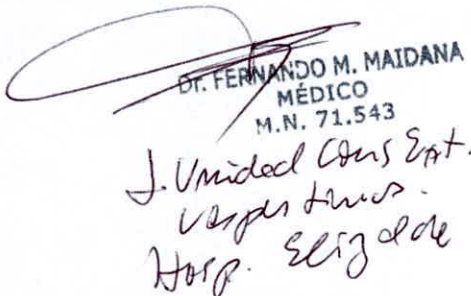 Dr. FERNANDO M. MAIDANA
MÉDICO
M.N. 71.543
J. Unidad Cons Ext.
Vespertinos.
Hosp. Elizalde